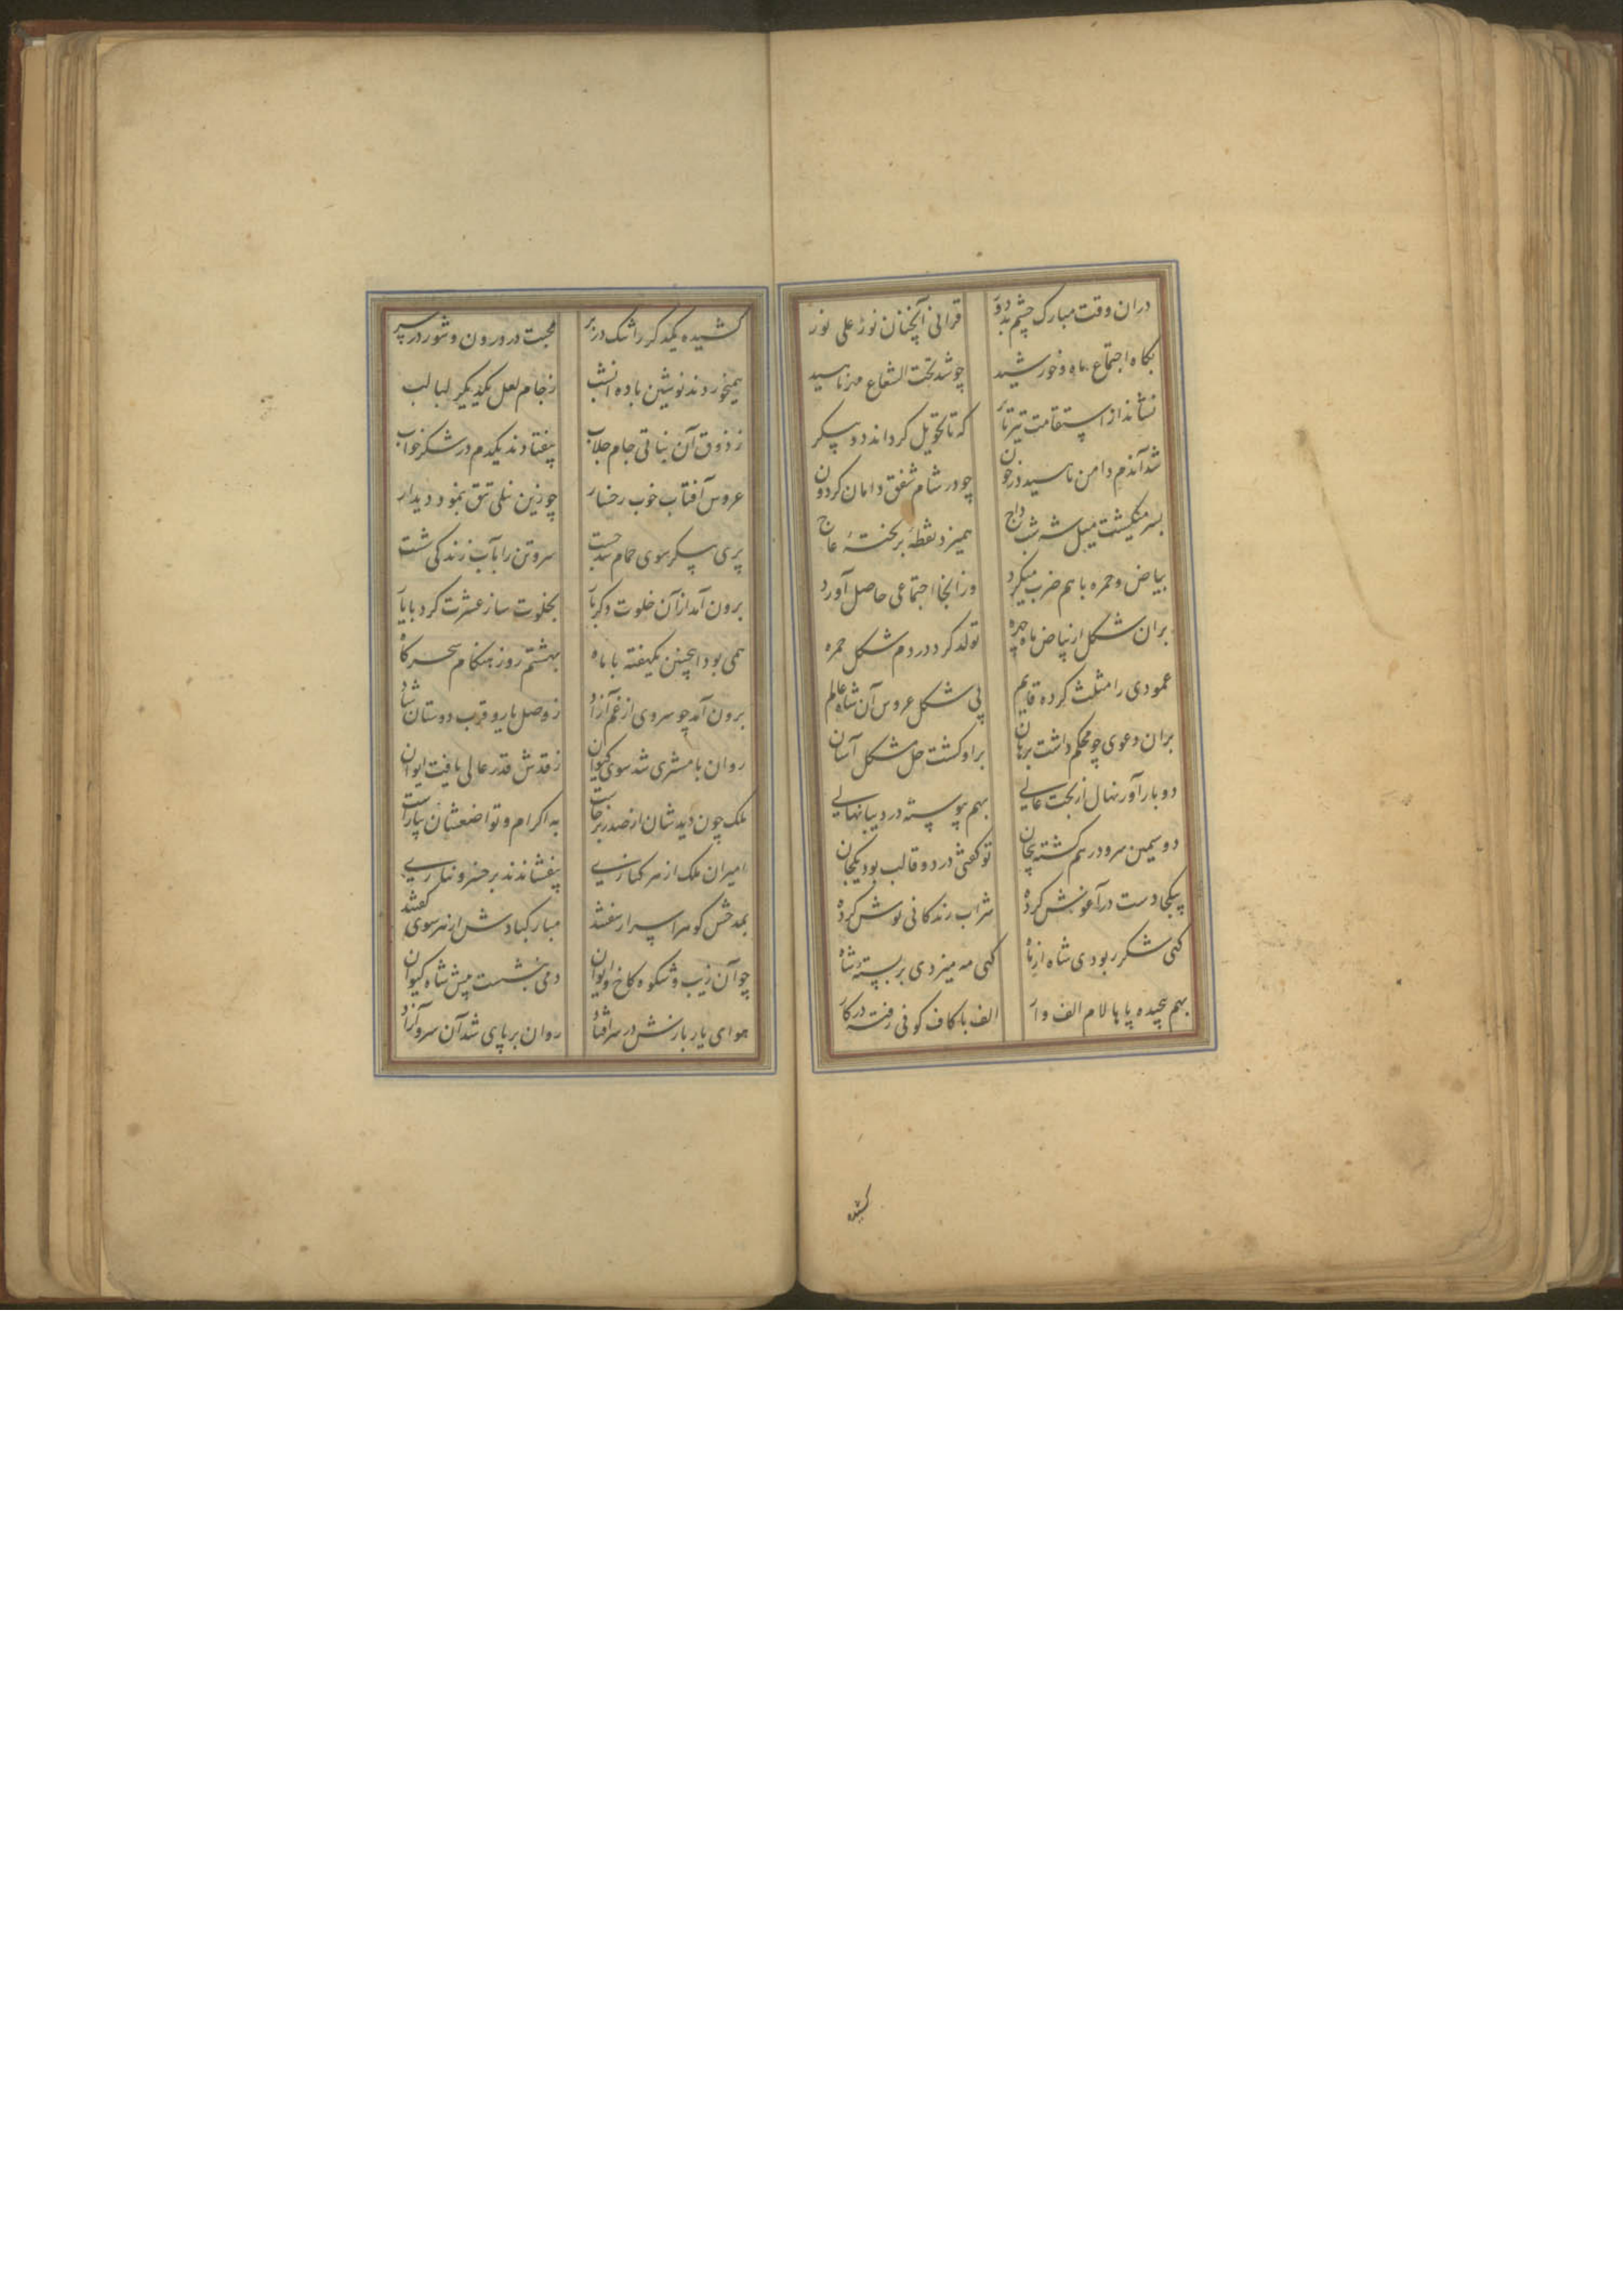 دران وقت مبارک چشم بد دور قرانی آنچنان نور علی نور
بکاه اجتماع ماه و خورشید چو شد تحت الشعاع مهر ناسید
نشاند از استقامت تیر تا پر که تا تحویل کرداند دو پیکر
شد آندم دامن ناسید در خون چو در شام شفق دامان کردون
بسر میکشت میل شه شب داج همیزد نقطهٔ بر تختهٔ عاج
بیاض و حمره با هم ضرب میکرد وز آنجا اجتماعی حاصل آورد
بران شکل از بیاض ماه چهره تولد کرد در دم شکل حمره
عمودی را مثلث کرده قایم پی شکل عروس آن شاه عالم
بران دعوی چو محکم داشت برهان براو کشت حل مشکل آسان
دو بار آور نهال از بخت عالی بهم پیوسته در دیبا نهالی
دو سیمین سرو درهم کشته پیچان تو کفتی در دو قالب بود یکجان
بیکجا دست در آغوش کرده شراب زندکانی نوش کرده
کهی شکر ربودی شاه از ماه کهی مه میزدی بر پسته شاه
بهم پیچیده پاها لام الف وار الف با کاف کوفی رفته در کار
کشیده
کشیده یکدکر را تنک در بر محبت در درون و شور در سر
همیخوردند نوشین باده آنشب ز جام لعل یکدیکر لبالب
ز ذوق آن نباتی جام جلاب بیفتادند یکدم در شکر خواب
عروس آفتاب خوب رخسار چو زین نیلی تتق بنمود دیدار
پری پیکر سوی حمام شد جست سر و تن را بآب زندکی شست
برون آمد از آن خلوت دکر بار بخلوت ساز عشرت کرد با یار
همی بود اینچنین یکهفته با ماه بهشتم روز هنکام سحرکاه
برون آمد چو سروی از غم آزاد ز وصل یار و قرب دوستان شاد
روان با مشتری شد سوی کیوان ز قدش قدر عالی یافت ایوان
ملک چون دید شان از صدر برخاست به اکرام و تواضعشان بیاراست
امیران ملک از هر کناری بیفشاندند بر خسرو نثاری
بمدحش کوهر اسرار سفتند مبارکبادش از هر سوی کفتند
چو آن زیب و شکوه کاخ و ایوان دمی بنشست پیش شاه کیوان
هوای یار بازش در سر افتاد روان بر پای شد آن سرو آزاد